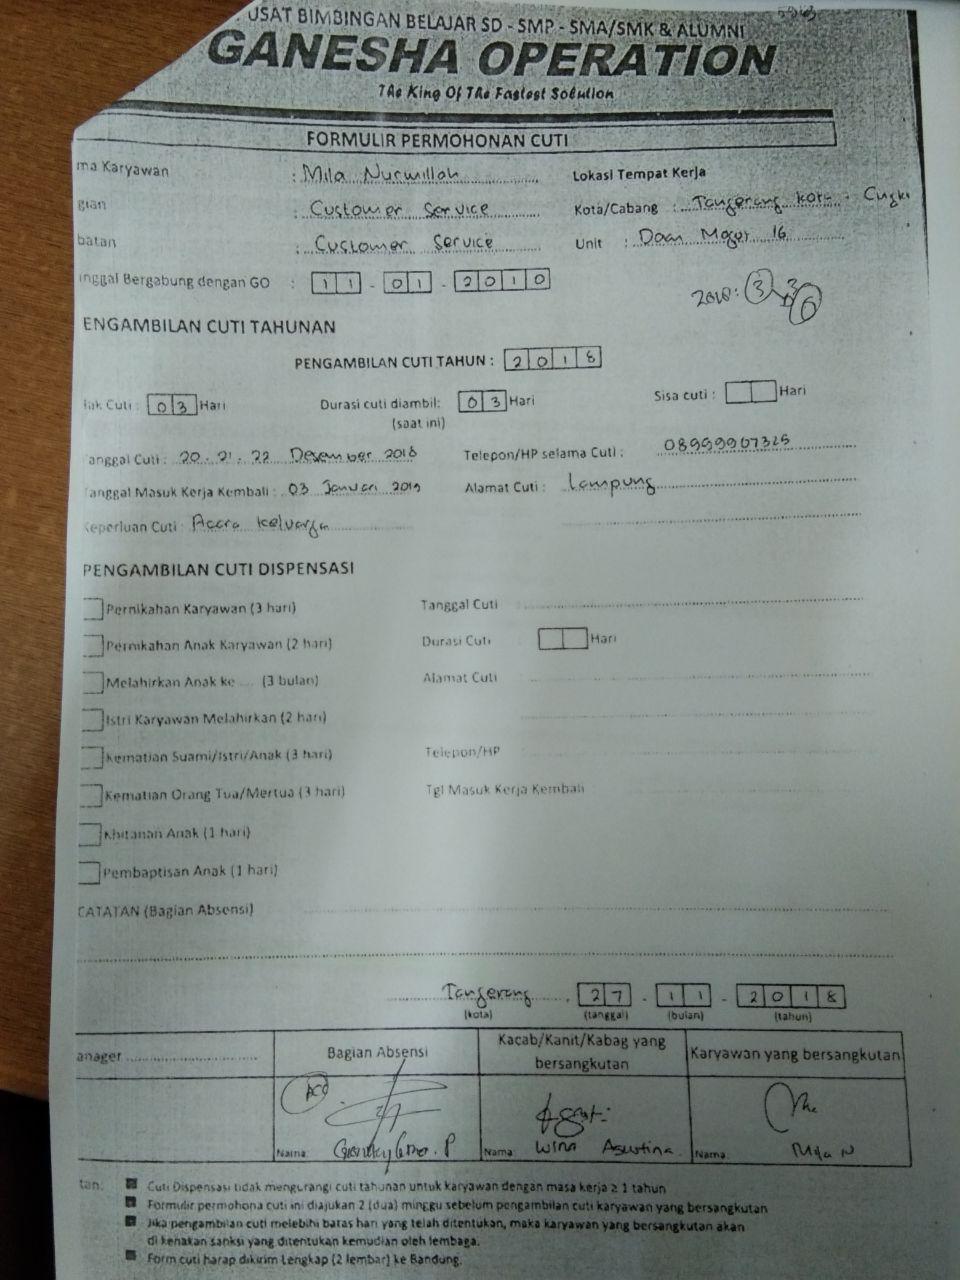 USAT BIMBINGAN BELAJAR SD - SMP - SMA/SMK & ALUMNI
GANESHA OPERATION
The King Of The Fastest Solution
FORMULIR PERMOHONAN CUTI
ma Karyawan : Mila Nurmillah Lokasi Tempat Kerja
gian : Customer Service Kota/Cabang : Tangerang kota -
batan : Customer Service Unit : Daan Mogot 16
inggal Bergabung dengan GO : 11 - 01 - 2010
2018: 3
ENGAMBILAN CUTI TAHUNAN
PENGAMBILAN CUTI TAHUN : 2018
Hak Cuti : 03 Hari Durasi cuti diambil: 03 Hari Sisa cuti : Hari
(saat ini)
anggal Cuti : 20 - 21 - 22 Desember 2018 Telepon/HP selama Cuti : 08999967325
Tanggal Masuk Kerja Kembali : 03 Januari 2019 Alamat Cuti : Lampung
Keperluan Cuti : Acara keluarga
PENGAMBILAN CUTI DISPENSASI
Pernikahan Karyawan (3 hari) Tanggal Cuti :
Pernikahan Anak Karyawan (2 hari) Durasi Cuti Hari
Melahirkan Anak ke .... (3 bulan) Alamat Cuti
Istri Karyawan Melahirkan (2 hari)
Kematian Suami/Istri/Anak (3 hari) Telepon/HP
Kematian Orang Tua/Mertua (3 hari) Tgl Masuk Kerja Kembali
Khitanan Anak (1 hari)
Pembaptisan Anak (1 hari)
CATATAN (Bagian Absensi)
Tangerang, 27 - 11 - 2018
(kota) (tanggal) (bulan) (tahun)
anager Bagian Absensi Kacab/Kanit/Kabag yang bersangkutan Karyawan yang bersangkutan
ACC
Nama Nama Wina Agustina Nama Mila N
tan: Cuti Dispensasi tidak mengurangi cuti tahunan untuk karyawan dengan masa kerja ≥ 1 tahun
Formulir permohona cuti ini diajukan 2 (dua) minggu sebelum pengambilan cuti karyawan yang bersangkutan
Jika pengambilan cuti melebihi batas hari yang telah ditentukan, maka karyawan yang bersangkutan akan
di kenakan sanksi yang ditentukan kemudian oleh lembaga.
Form cuti harap dikirim Lengkap (2 lembar) ke Bandung.